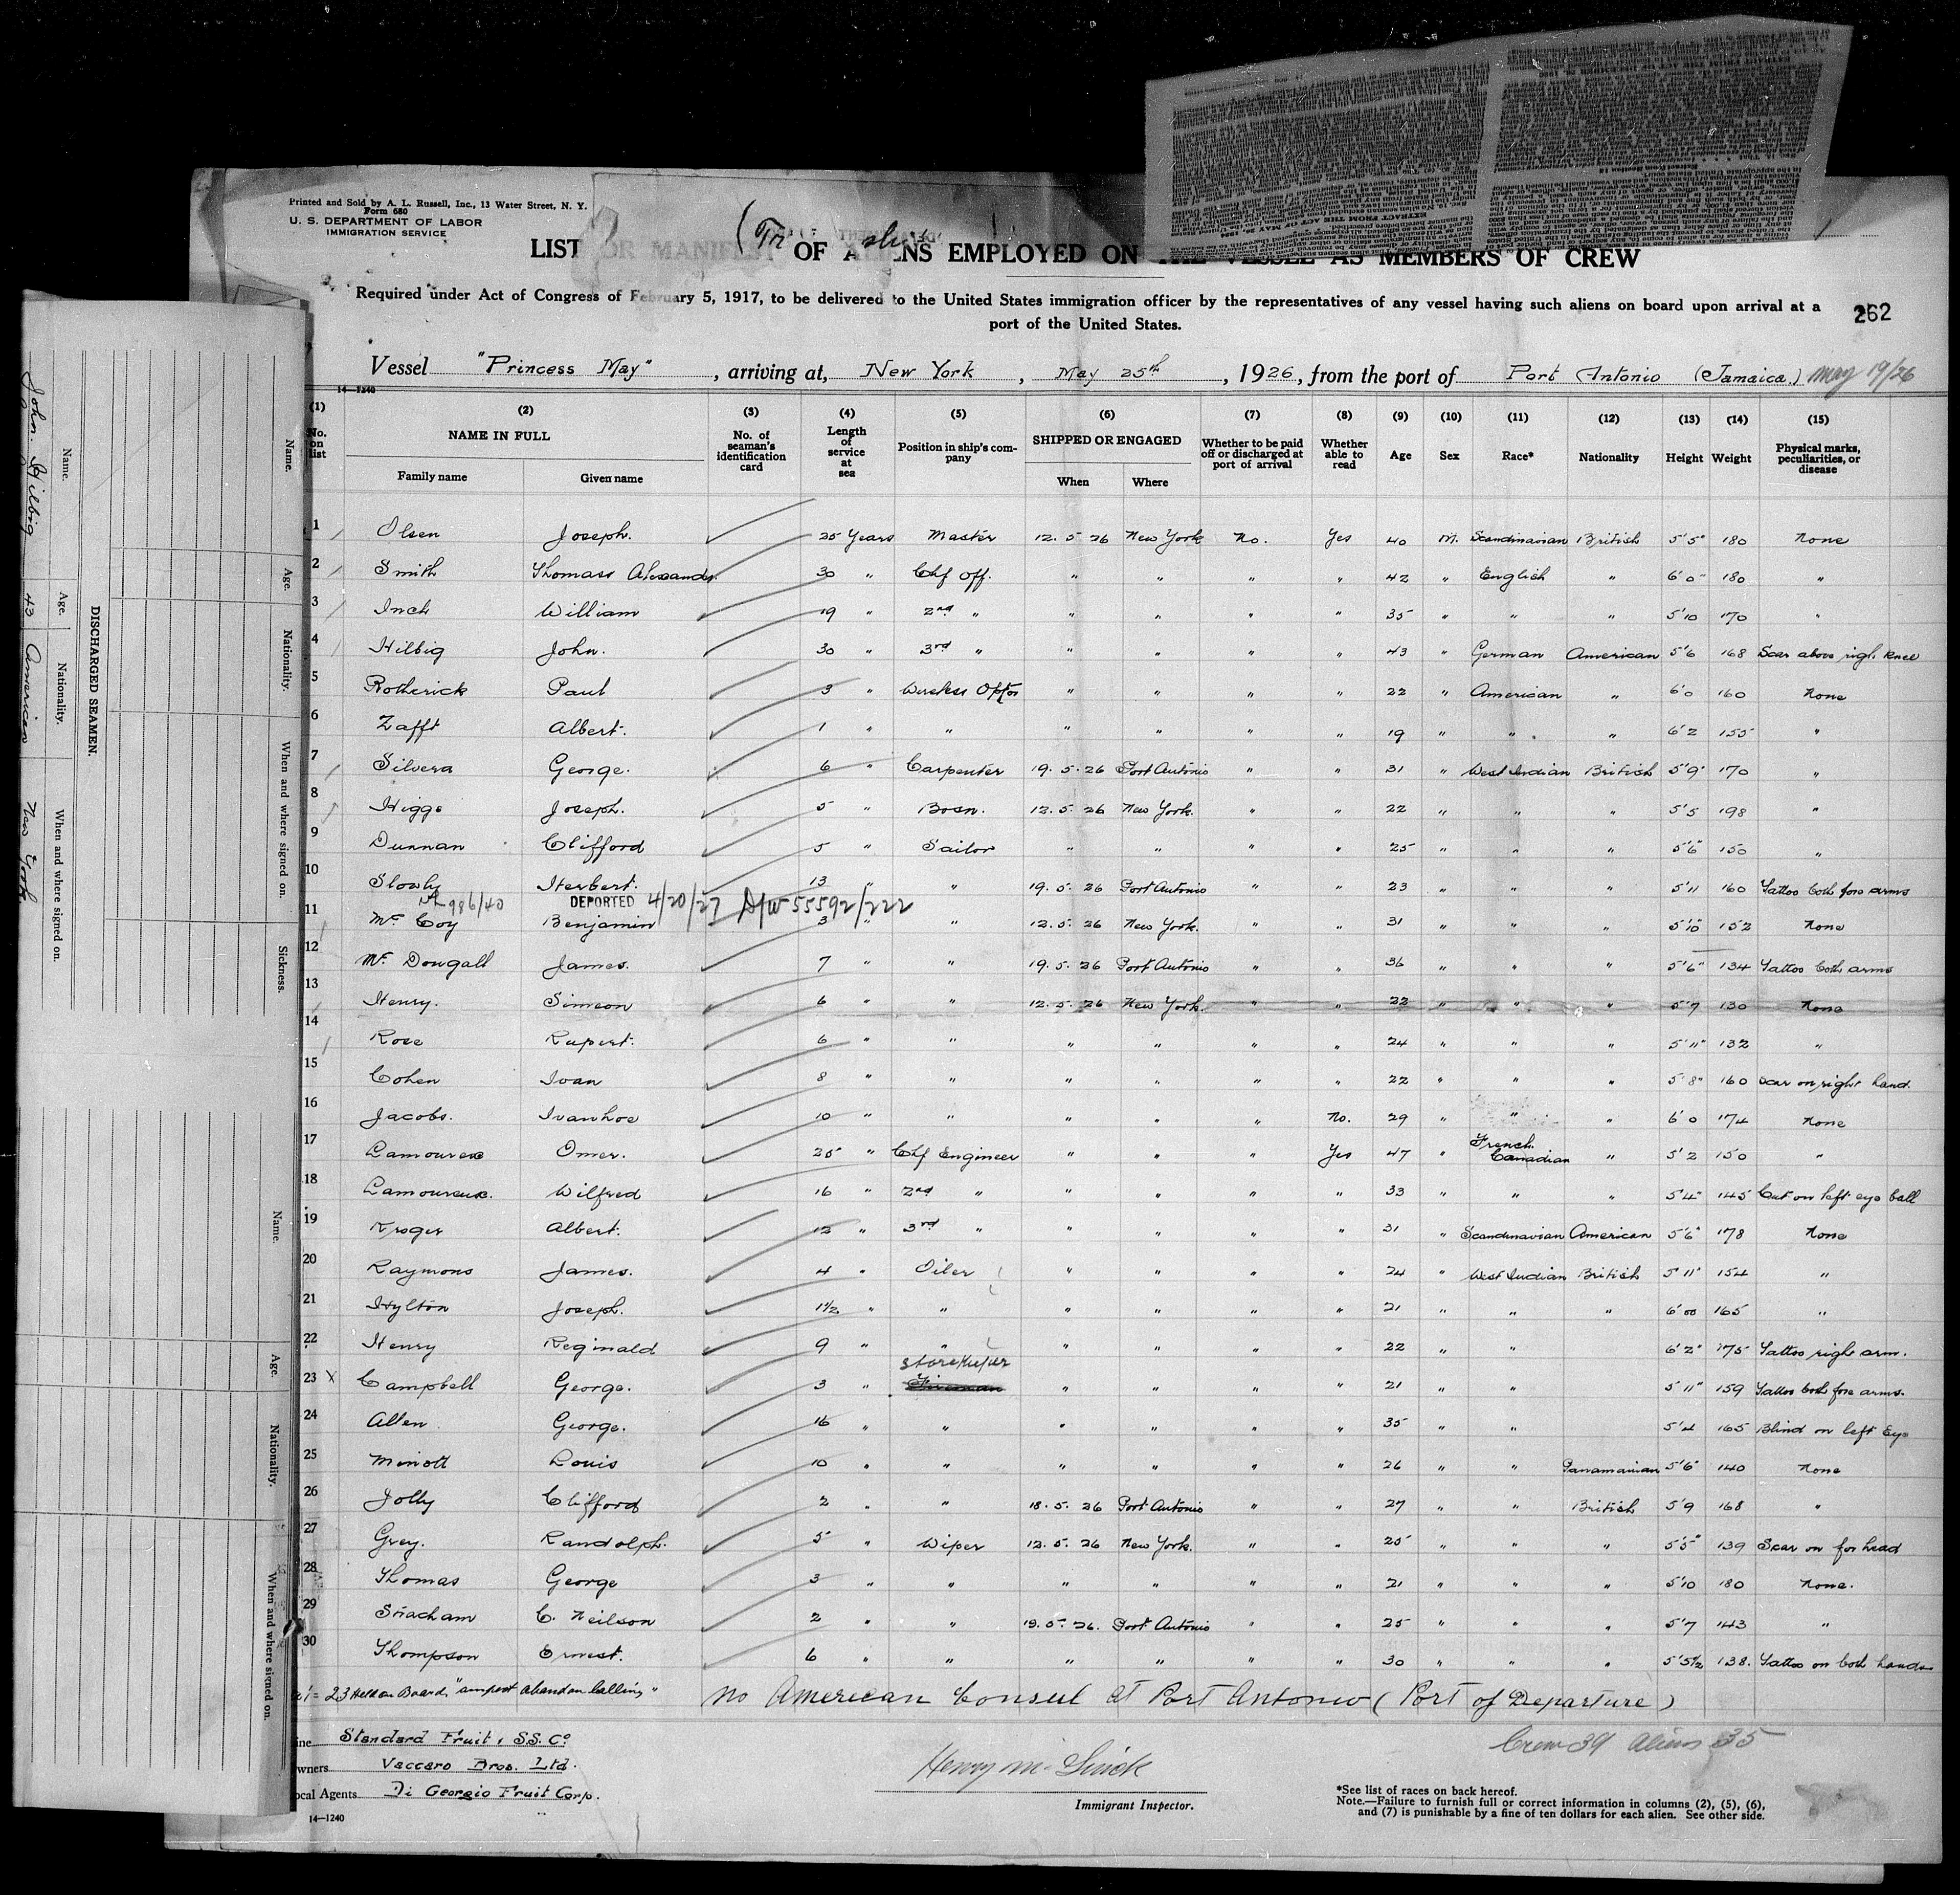 Printed and Sold by A. L. Russell, Inc., 13 Water Street, N. Y.
Form 680
U. S. DEPARTMENT OF LABOR
IMMIGRATION SERVICE
LIST OR MANIFEST OF ALIENS EMPLOYED ON THE VESSEL AS MEMBERS OF CREW
Required under Act of Congress of February 5, 1917, to be delivered to the United States immigration officer by the representatives of any vessel having such aliens on board upon arrival at a
port of the United States.
262
Vessel "Princess May", arriving at, New York, May 25th, 1926, from the port of Port Antonio (Jamaica.) May 19/26
14—1240
(1) (2) (3) (4) (5) (6) (7) (8) (9) (10) (11) (12) (13) (14) (15)
No. on list NAME IN FULL Family name Given name No. of seaman's identification card Length of service at sea Position in ship's company SHIPPED OR ENGAGED When Where Whether to be paid off or discharged at port of arrival Whether able to read Age Sex Race* Nationality Height Weight Physical marks, peculiarities, or disease
1 Olsen Joseph. 25 Years Master 12. 5 26 New York No. Yes 40 M. Scandinavian British 5'5" 180 None
2 Smith Thomass 30 " Chf Off. " " " " 42 " English " 6'0" 180 "
3 Inch William 19 " 2nd " " " " " 35 " " " 5'10 170 "
4 Hilbig John. 30 " 3rd " " " " " 43 " German American 5'6 168 Scar above righ. Knee
5 Rotherick Paul 3 " Wireless " " " " 22 " American " 6'0 160 None
6 Zafft Albert. 1 " " " " " " 19 " " " 6'2 155 "
7 Silvera George. 6 " Carpenter 19. 5. 26 Port Antonio " " 31 " West Indian British 5'9" 170 "
8 Higgs Joseph. 5 " Bosn. 12. 5. 26 New York. " " 22 " " " 5'5 198 "
9 Dunnan Clifford 5 " Sailor " " " " 25 " " " 5'6" 150 "
10 Slowly Herbert. 13 " " 19. 5. 26 Port Antonio " " 23 " " " 5'11 160 Tattoo both fore arms
986/40 DEPORTED 4/20/27 55592/222
11 Mc Coy Benjamin 3 " " 12. 5. 26 New York. " " 31 " " " 5'10" 152 None
12 Mc Dougall James. 7 " " 19. 5. 26 Port Antonio " " 36 " " " 5'6" 134 Tattoo both arms
13 Henry. Simeon 6 " " 12. 5. 26 New York. " " 22 " " " 5'7 130 None
14 Rose Rupert. 6 " " " " " " 24 " " " 5'11" 132 "
15 Cohen Ivan 8 " " " " " " 22 " " " 5'8" 160 Scar on right hand.
16 Jacobs. Ivanhoe 10 " " " " " No. 29 " " " 6'0 174 None
17 Lamoureux Omer. 25 " Chf Engineer " " " Yes 47 " French Canadian " 5'2 150 "
18 Lamoureux. Wilfred 16 " 2nd " " " " " 33 " " " 5'4" 145 Cut on left eye ball
19 Kroger Albert. 12 " 3rd " " " " " 31 " Scandinavian American 5'6" 178 None
20 Raymons James. 4 " Oiler " " " " 24 " West Indian British 5'11" 154 "
21 Hylton Joseph. 1½ " " " " " " 21 " " " 6'00 165 "
22 Henry Reginald 9 " " " " " " 22 " " 6'2" 175 Tattoo right arm.
23 X Campbell George. 3 " storekeeper Fireman " " " " 21 " " 5'11" 159 Tattoo both fore arms.
24 Allen George. 16 " " " " " " 35 " " 5'4 165 Blind on left Eye
25 Minott Louis 10 " " " " " " 26 " " Panamanian 5'6" 140 None
26 Jolly Clifford 2 " " 18. 5. 26 Port Antonio " " 27 " " British 5'9 168 "
27 Grey. Randolph. 5 " Wiper 12. 5. 26 New York. " " 25 " " " 5'5" 139 Scar on for head
28 Thomas George 3 " " " " " " 21 " " " 5'10 180 None.
29 C. Neilson 2 " " 19. 5. 26. Port Antonio " " 25 " " " 5'7 143 "
30 Thompson Ernest. 6 " " " " " " 30 " " " 5'5½ 138. Tattoo on both hands
23 Held on Board,
No American Consul at Port Antonio (Port of Departure)
Standard Fruit & S.S. Co
Owners Vaccaro Bros. Ltd.
Local Agents Di Georgio Fruit Corp.
14—1240
Immigrant Inspector.
Crew 39 Aliens 35
*See list of races on back hereof.
Note.—Failure to furnish full or correct information in columns (2), (5), (6),
and (7) is punishable by a fine of ten dollars for each alien. See other side.
DISCHARGED SEAMEN.
Name. Age. Nationality. When and where signed on.
John. Hilbig 43 American New York
Name. Age. Nationality. When and where signed on. Sickness.
Name. Age. Nationality. When and where signed on.
EXTRACT FROM THE ACT OF MAY 26, 1924